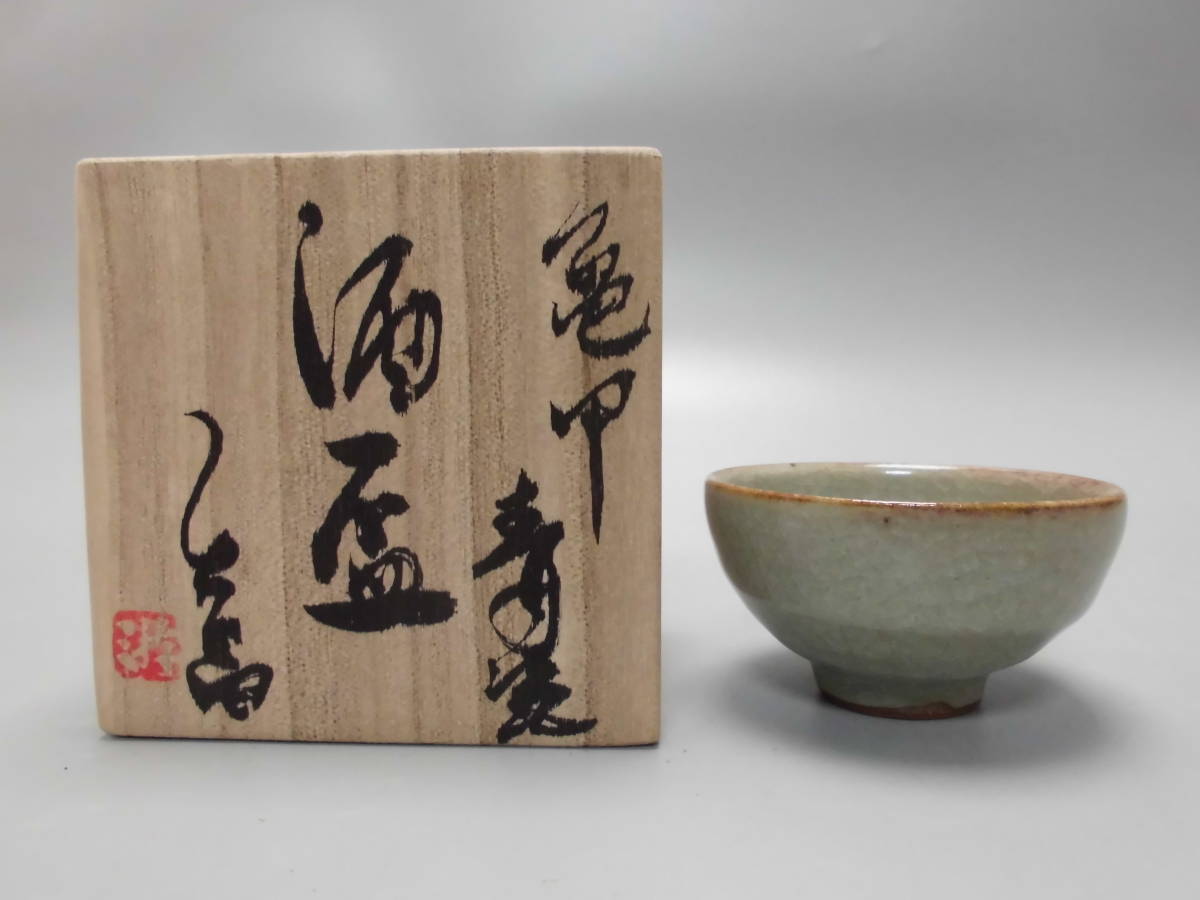 亀甲青瓷
酒盃